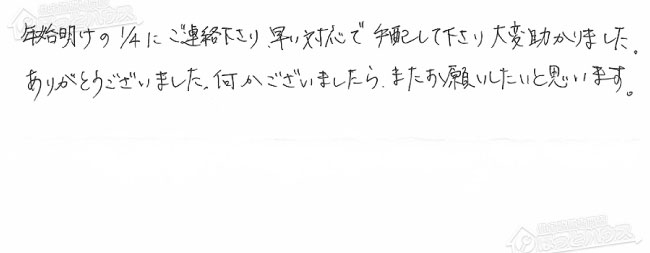 年始明けの1/4にご連絡下さり早い対応で手配して下さり大変助かりました。
ありがとうございました。何かございましたら、またお願いしたいと思います。